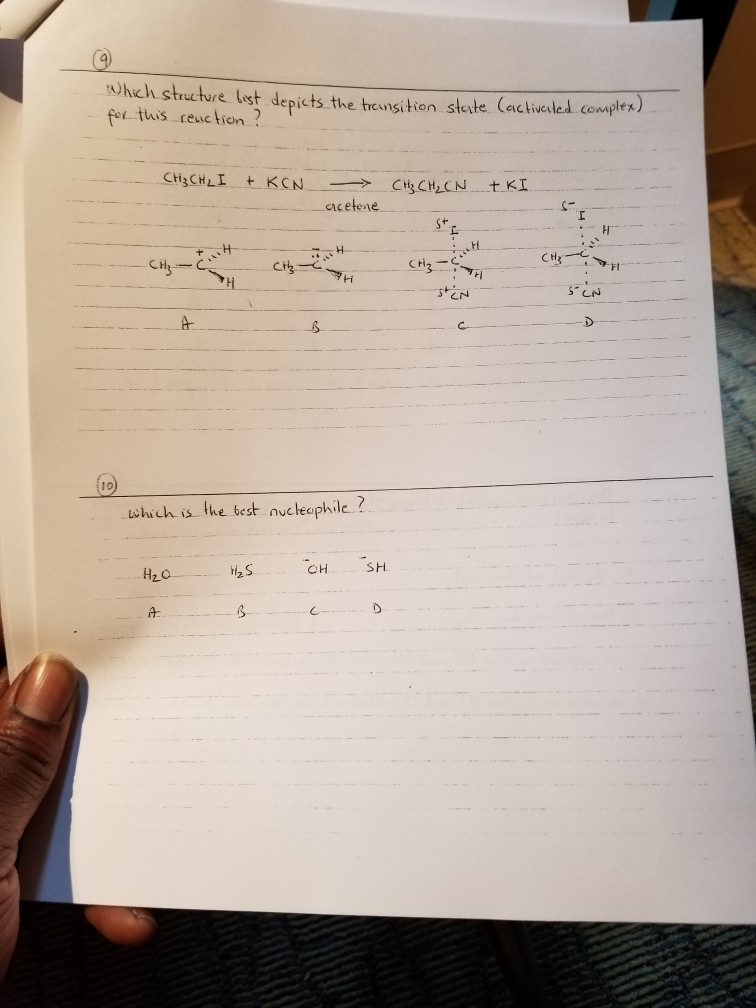 9
Which structure best depicts the transition state (activated complex)
for this reaction?
CH3CH2I + KCN → CH3CH2CN + KI
acetone
CH3 — C + H H
CH3 — C : H H
S+ I CH3 — C H H S+ CN
S- I CH3 — C H H S- CN
A B C D
10
which is the best nucleophile?
H2O H2S -OH -SH
A B C D